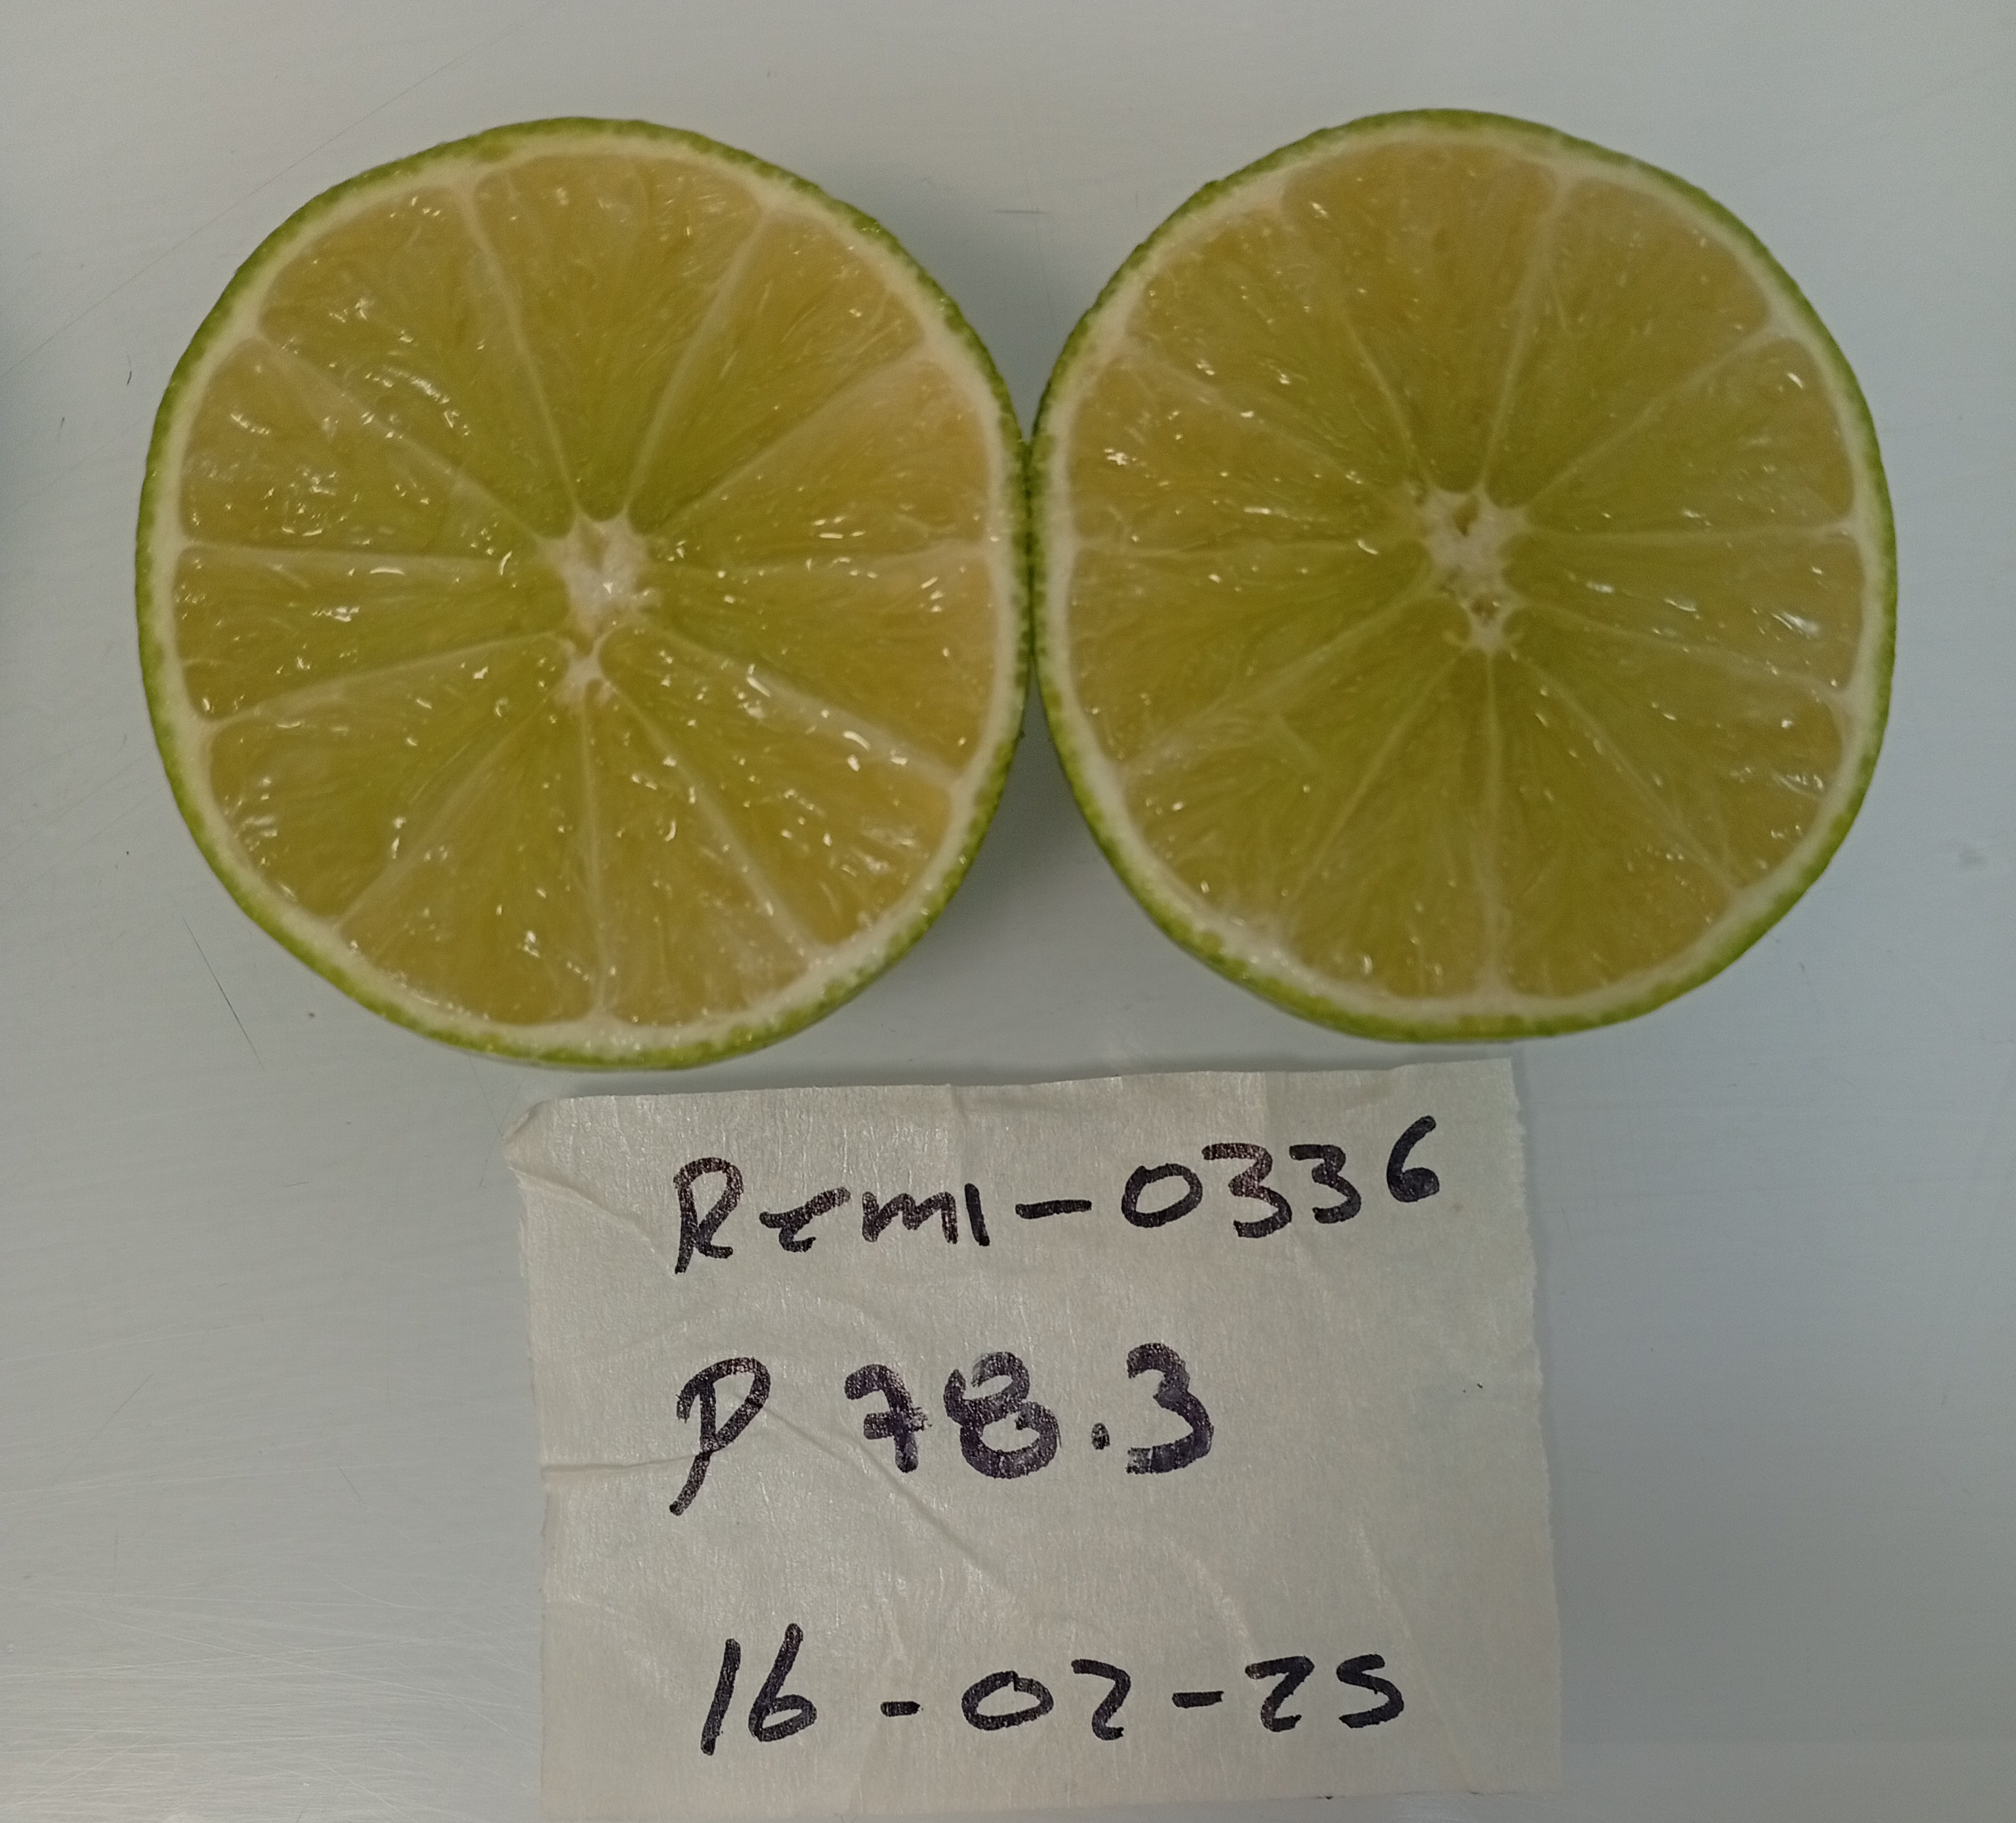 Remi-0336
P 78.3
16-02-25